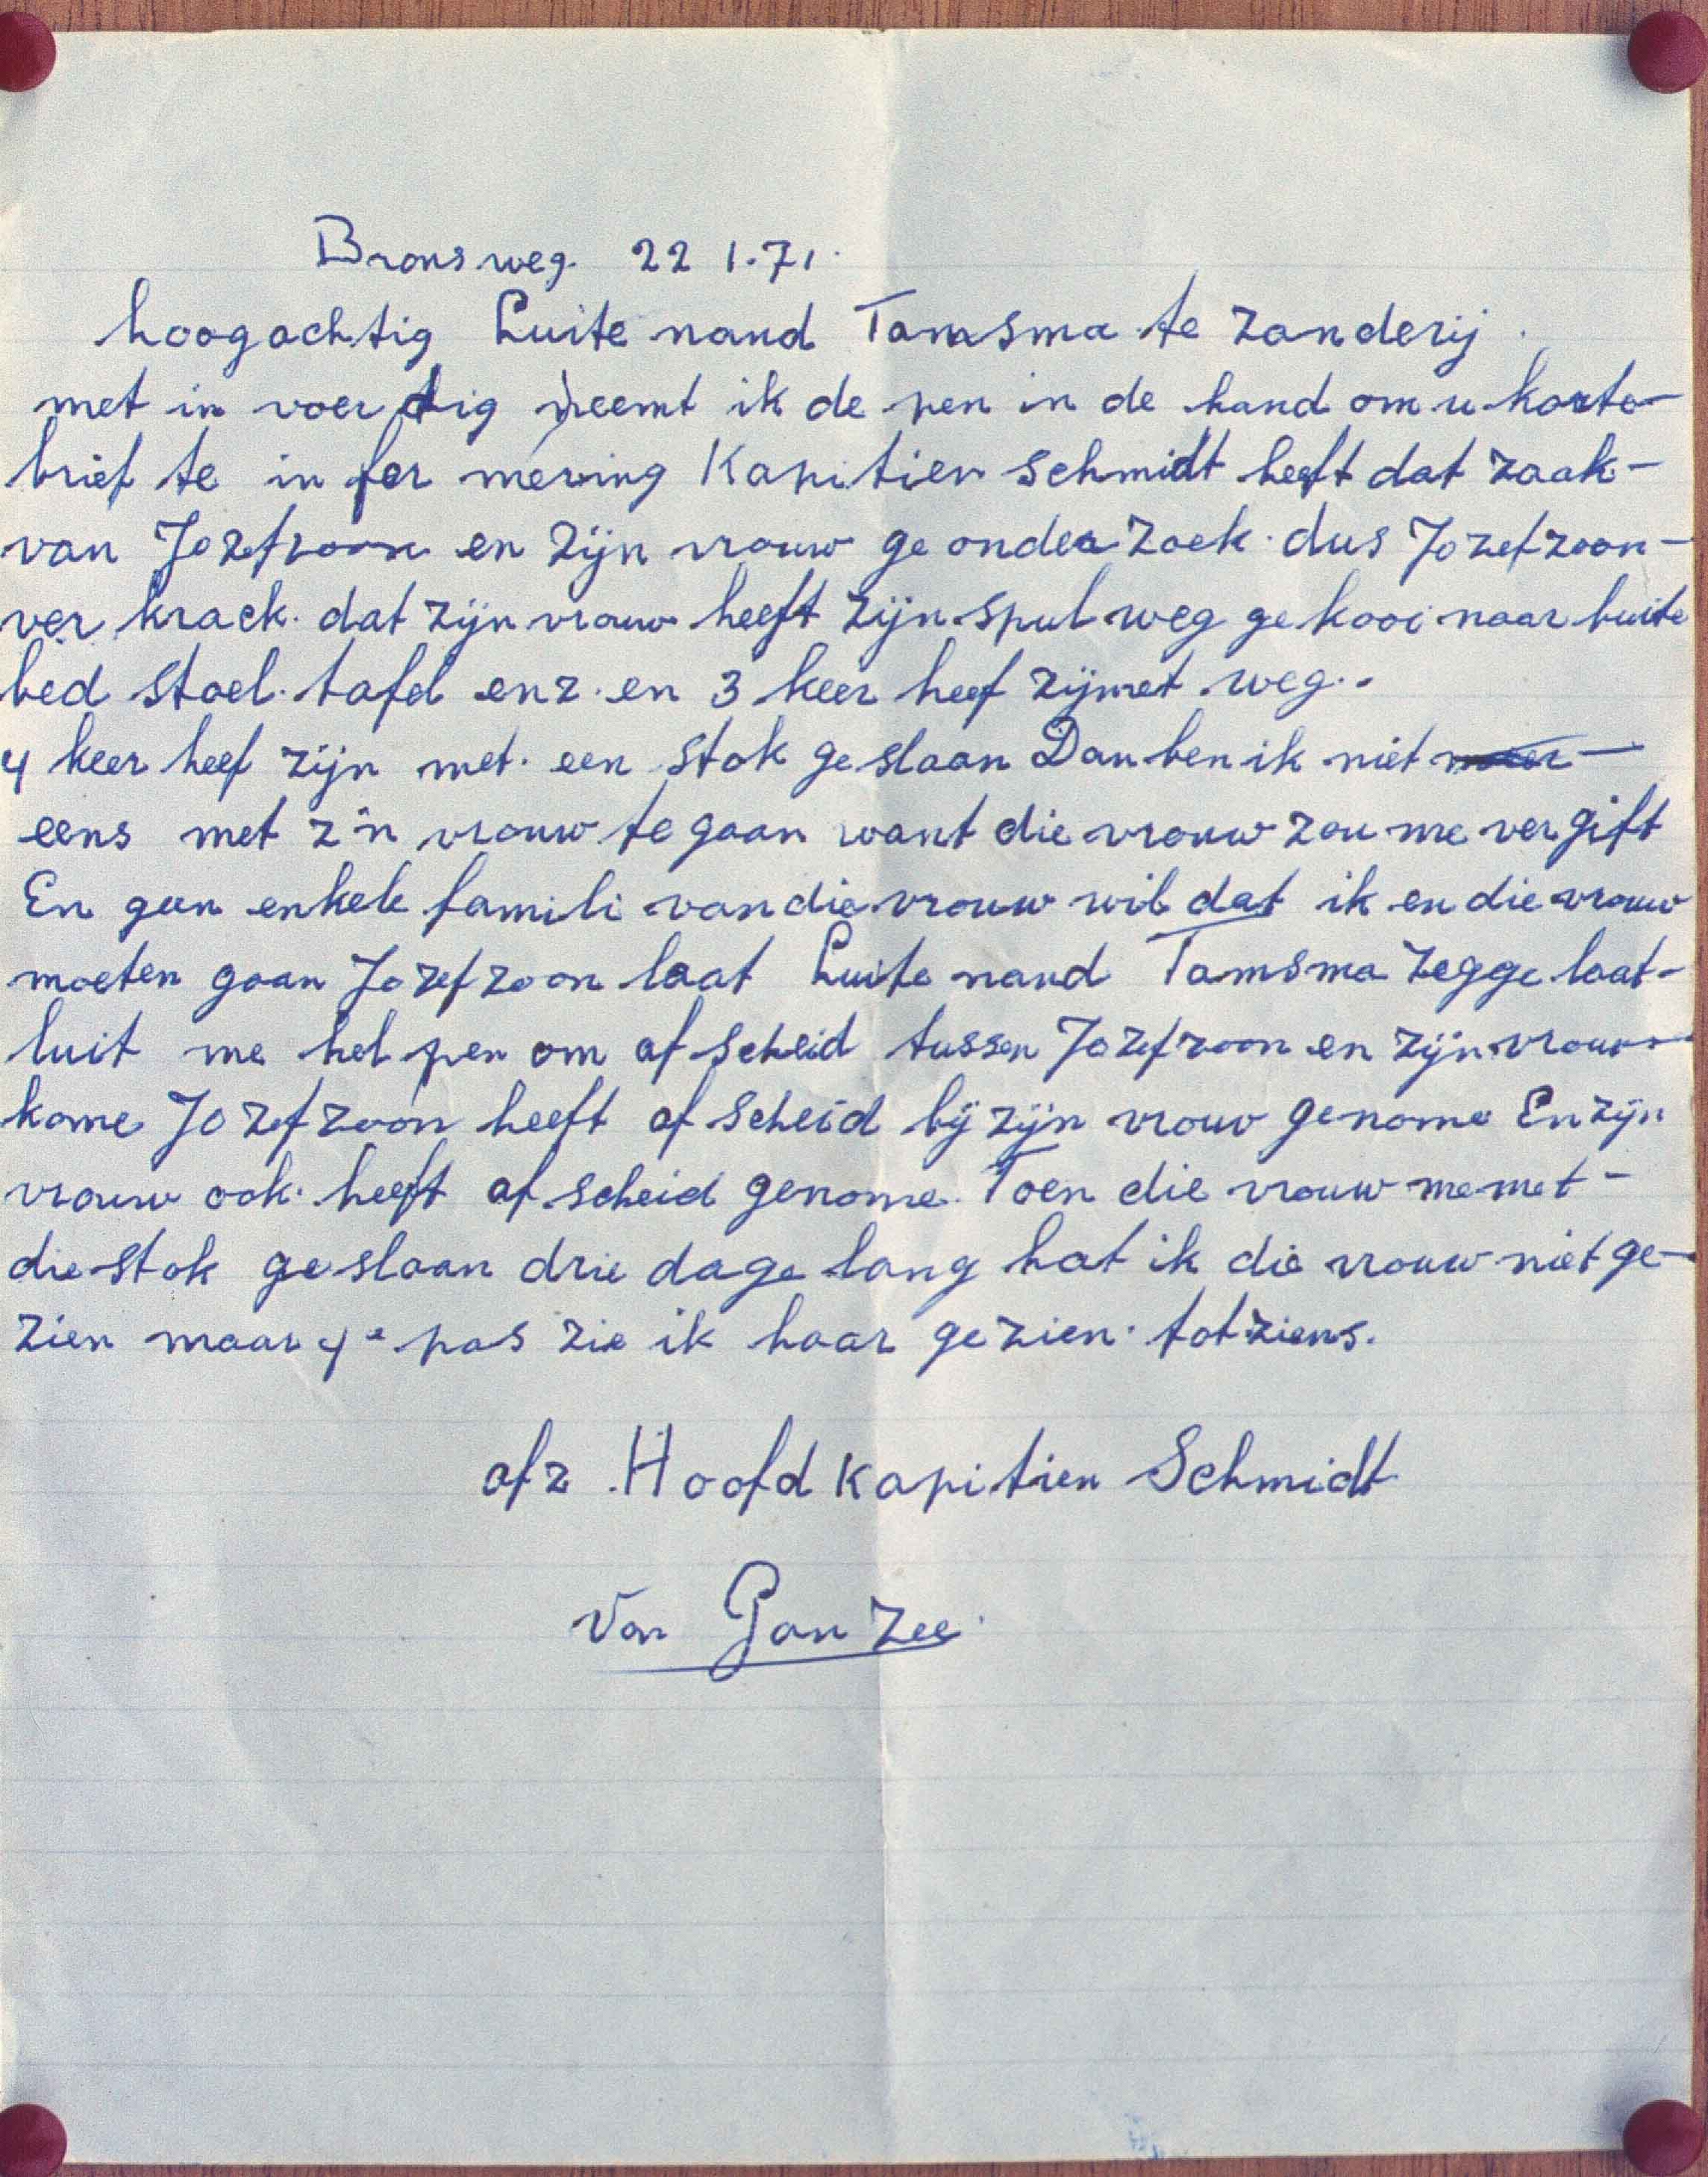 Bronsweg. 22 1.71.
hoogachtig Luite nand Tamsma te Zanderij.
met in voer dig neemt ik de pen in de hand om u korte-
brief te in fer mering Kapitien Schmidt heeft dat zaak-
van Jozefzoon en zijn vrouw ge onder zoek. dus Jozefzoon-
ver krack. dat zijn vrouw heeft zijn spul weg ge kooi naar buite
bed stoel. tafel enz. en 3 keer heef zij met weg..
4 keer heef zijn met. een stok ge slaan Dan ben ik niet
eens met z'n vrouw te gaan want die vrouw zou me ver gift
En geen enkele famili van die vrouw wil dat ik en die vrouw
moeten gaan Jozefzoon laat Luite nand Tamsma zegge laat-
luit me hel pen om af scheid tussen Jozefzoon en zijn vrouw
kome Jozefzoon heeft af scheid bij zijn vrouw genome En zijn
vrouw ook. heeft af scheid genome. Toen die vrouw me met-
die stok geslaan drie dage lang hat ik die vrouw niet ge-
zien maar 4e pas zie ik haar gezien. tot ziens.
afz. Hoofd Kapitien Schmidt
Van Gan Zee.